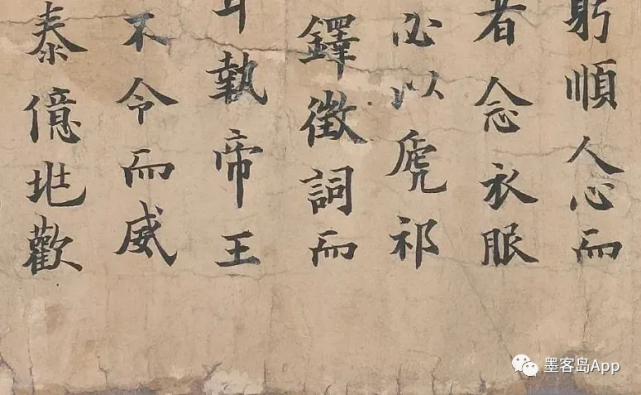 躬順人心而
者念衣服
必以虒祁
鐸徵詞而
執帝王
不令而威
泰億兆歡
墨客岛App